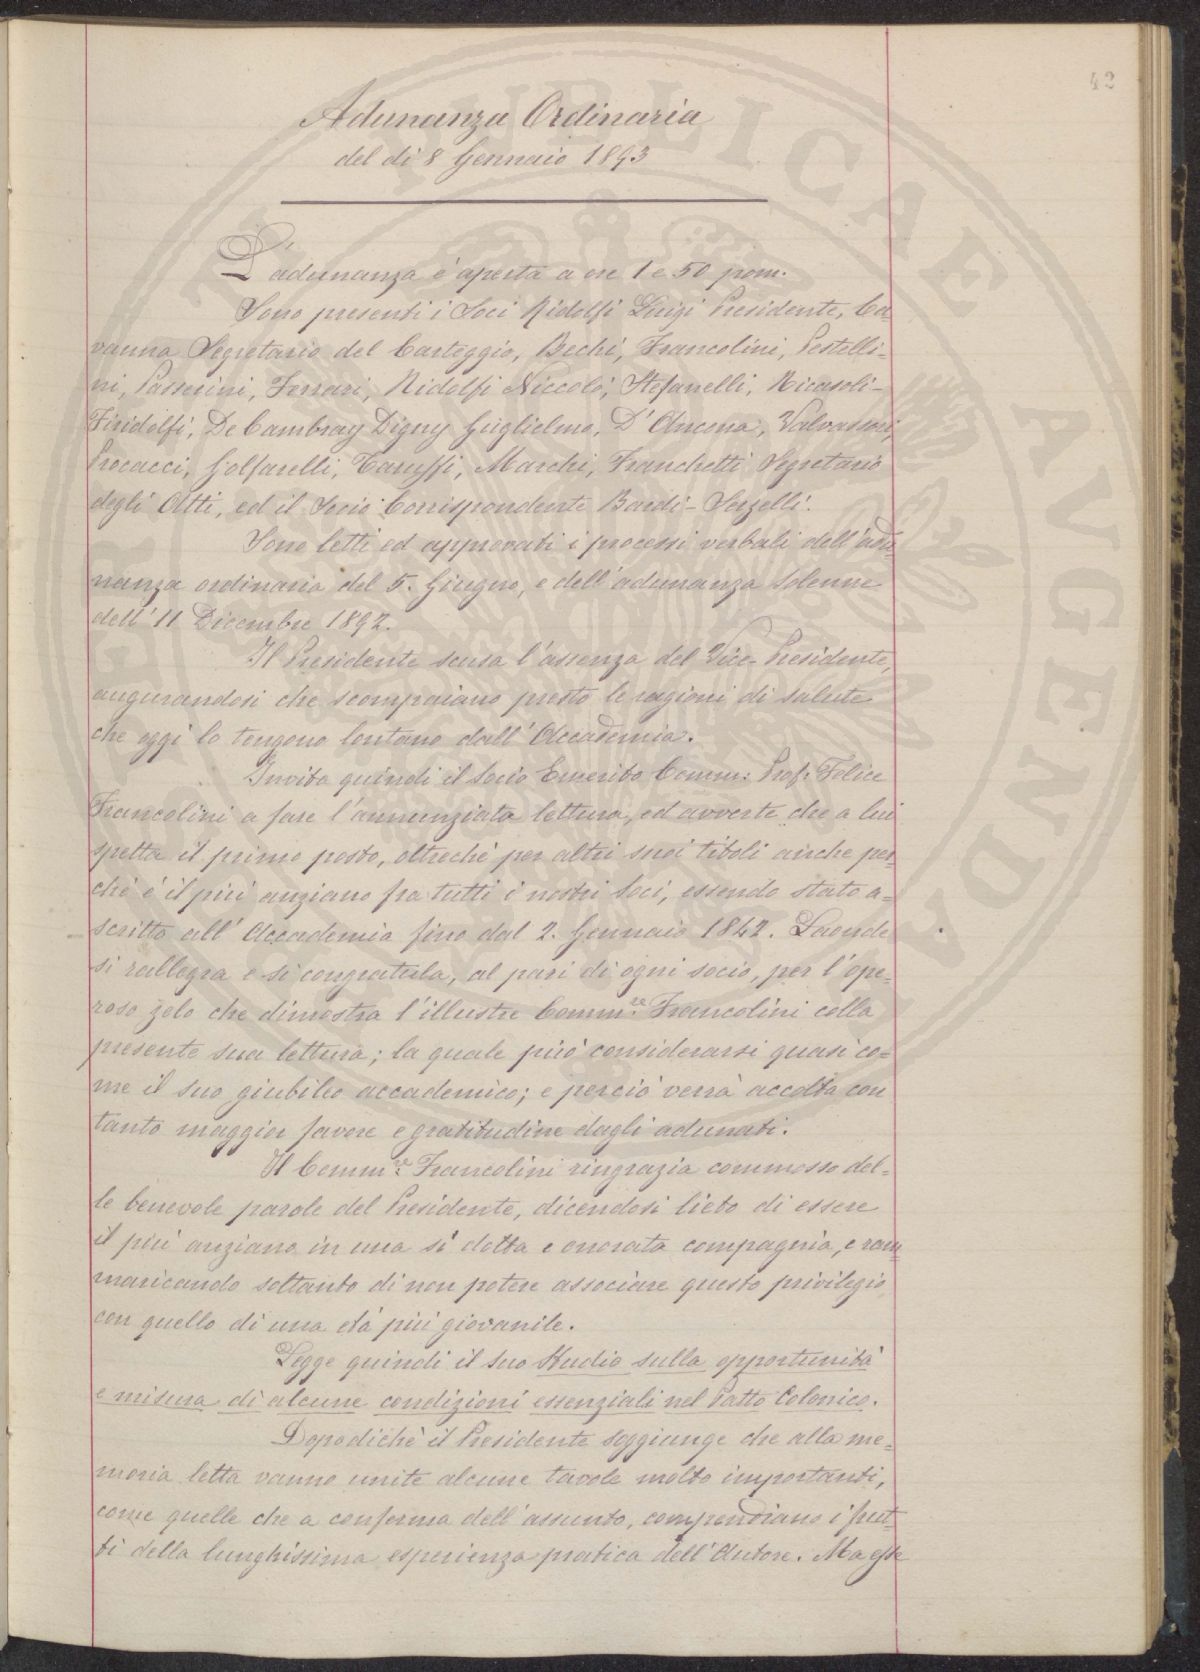 42
Adunanza Ordinaria
del dì 8 Gennaio 1893
L'adunanza è aperta a ore 1 e 50 pom.
Sono presenti i Soci Ridolfi Luigi Presidente, Ca-
vanna Segretario del Carteggio, Bechi, Francolini, Pestelli-
ni, Passerini, Ferrari, Ridolfi Niccolò, Stefanelli, Ricasoli-
Firidolfi, De Cambray Digny Guglielmo, D'Ancona, Valvassori,
Procacci, Golfarelli, Caruffi, Marchi, Franchetti Segretario
degli Atti, ed il Socio Corrispondente Bardi-Serzelli.
Sono letti ed approvati i processi verbali dell'adu-
nanza ordinaria del 5. Giugno, e dell'adunanza solenne
dell'11 Dicembre 1892.
Il Presidente scusa l'assenza del Vice-Presidente,
augurandosi che scompaiano presto le ragioni di salute
che oggi lo tengono lontano dall'Accademia.
Invita quindi il Socio Emerito Comm: Prof: Felice
Francolini a fare l'annunziata lettura, ed avverte che a lui
spetta il primo posto, oltreché per altri suoi titoli anche per-
chè è il più anziano fra tutti i nostri Soci, essendo stato a=
scritto all'Accademia fino dal 2. Gennaio 1842. Laonde
si rallegra e si congratula, al pari di ogni socio, per l'ope=
roso zelo che dimostra l'illustre Comm:re Francolini colla
presente sua lettura; la quale può considerarsi quasi co=
me il suo giubileo accademico; e perciò verrà accolta con
tanto maggior favore e gratitudine dagli adunati.
Il Comm:re Francolini ringrazia commosso del=
le benevole parole del Presidente, dicendosi lieto di essere
il più anziano in una sì dotta e onorata compagnia, e ram
maricando soltanto di non potere associare questo privilegio
con quello di una età più giovanile.
Legge quindi il suo Studio sulla opportunità
e misura di alcune condizioni essenziali nel Patto Colonico.
Dopodichè il Presidente soggiunge che alla me=
moria letta vanno unite alcune tavole molto importanti,
come quelle che a conferma dell'assunto, compendiano i frut-
ti della lunghissima esperienza pratica dell'Autore. Ma esse